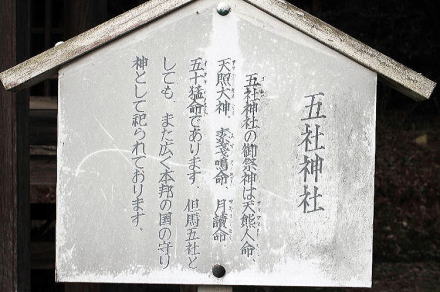 五社神社
五社神社の御祭神は天熊人命、
天照大神、素戔嗚命、月讀命
五十猛命であります 但馬五社と
しても、また広く本邦の国の守り
神として祀られております、